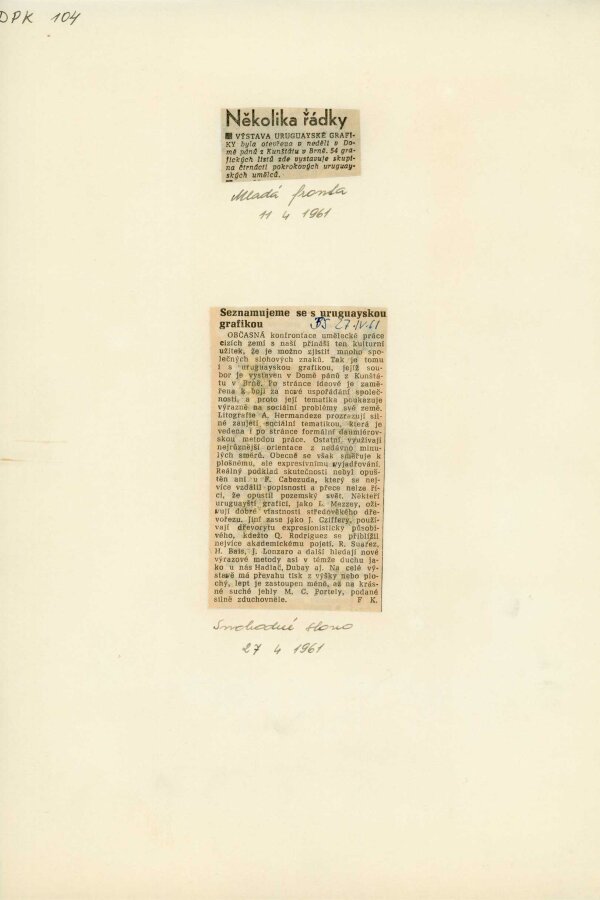 DPK 104
Několika řádky
VÝSTAVA URUGUAYSKÉ GRAFI-
KY byla otevřena v neděli v Do-
mě pánů z Kunštátu v Brně. 54 gra-
fických listů zde vystavuje skupi-
na čtrnácti pokrokových uruguay-
ských umělců.
Mladá fronta
11 4 1961
Seznamujeme se s uruguayskou
grafikou
27.IV.61
OBČASNÁ konfrontace umělecké práce
cizích zemí s naší přináší ten kulturní
užitek, že je možno zjistit mnoho spo-
lečných slohových znaků. Tak je tomu
i s uruguayskou grafikou, jejíž sou-
bor je vystaven v Domě pánů z Kunštá-
tu v Brně. Po stránce ideové je zamě-
řena k boji za nové uspořádání společ-
nosti, a proto její tematika poukazuje
výrazně na sociální problémy své země.
Litografie A. Hermandeze prozrazují sil-
né zaujetí sociální tematikou, která je
vedena i po stránce formální daumiérov-
skou metodou práce. Ostatní využívají
nejrůznější orientace z nedávno minu-
lých směrů. Obecně se však směřuje k
plošnému, ale expresivnímu vyjadřování.
Reálný podklad skutečnosti nebyl opuš-
těn ani u F. Cabezuda, který se nej-
více vzdálil popisnosti a přece nelze ří-
ci, že opustil pozemský svět. Někteří
uruguayští grafici, jako L. Mezzey, oži-
vují dobré vlastnosti středověkého dře-
vořezu. Jiní zase jako J. Cziffery, použí-
vají dřevorytu expresionisticky působi-
vého, kdežto Q. Rodriguez se přiblížil
nejvíce akademickému pojetí. R. Suarez,
H. Bais, J. Lonzaro a další hledají nové
výrazové metody asi v témže duchu ja-
ko u nás Hadlač, Dubay aj. Na celé vý-
stavě má převahu tisk z výšky nebo plo-
chý, lept je zastoupen méně, až na krás-
né suché jehly M. C. Portely, podané
silně zduchovněle. F K.
Svobodné slovo
27 4 1961